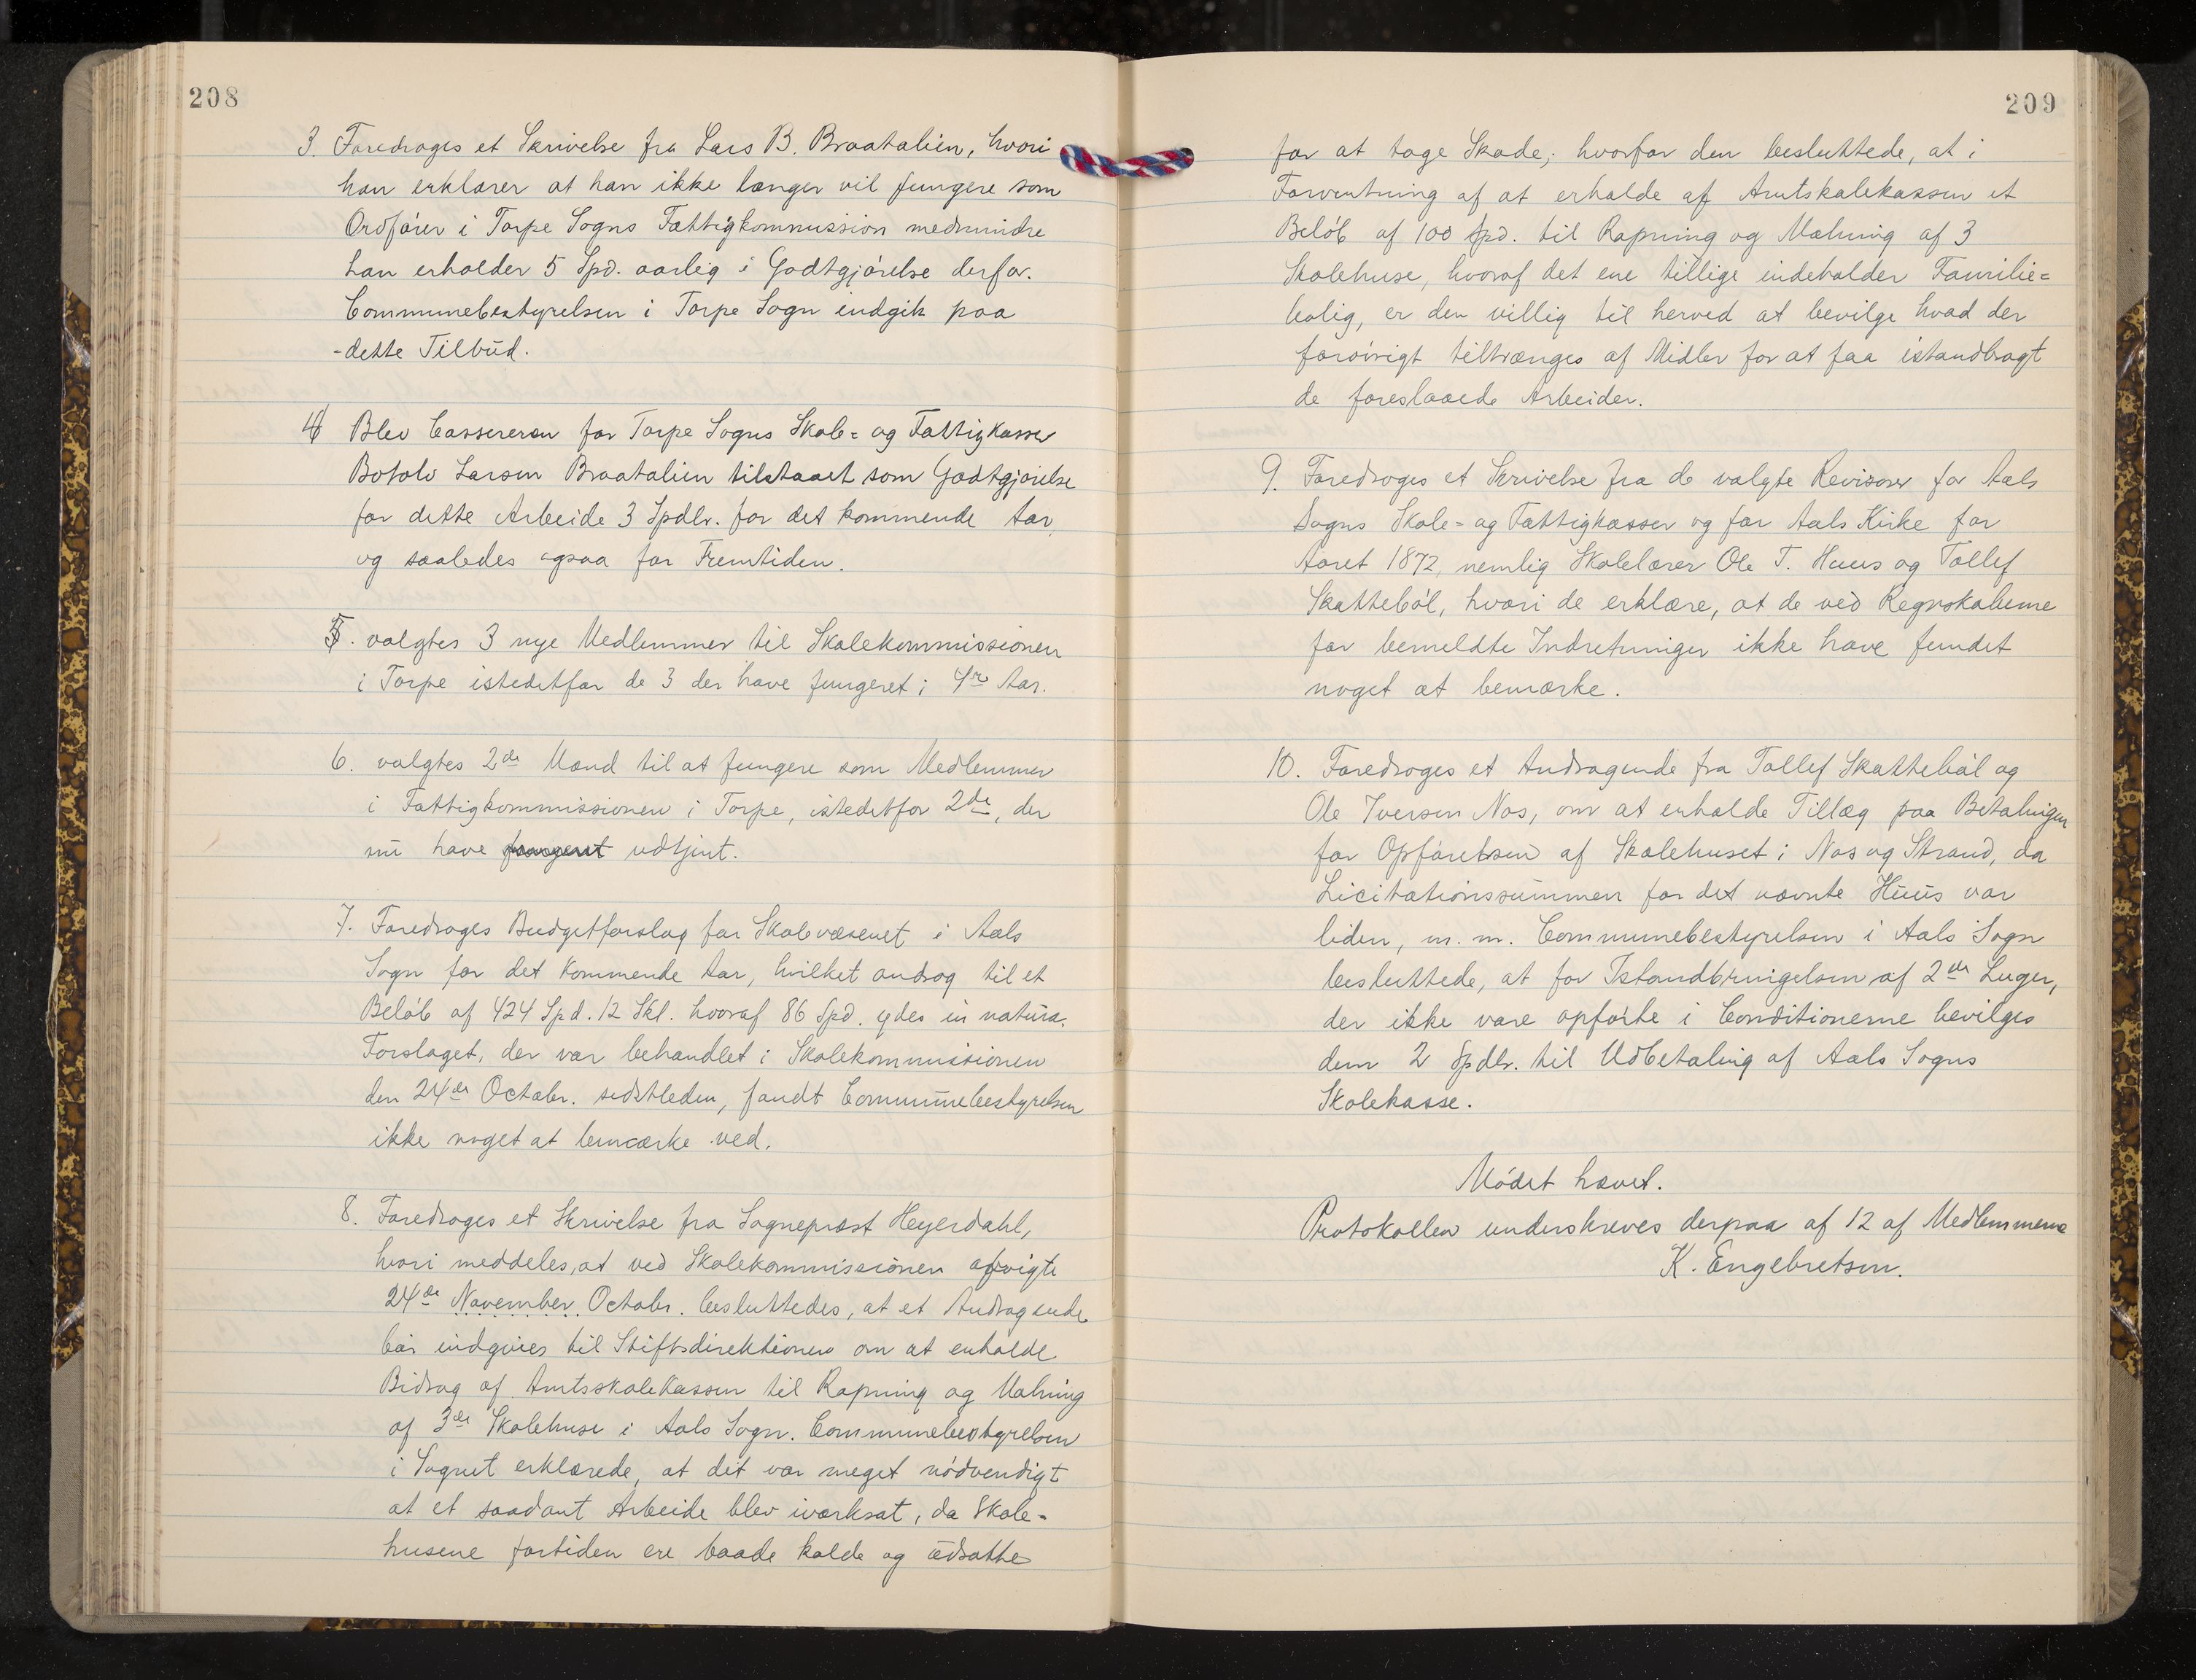 208
3. Foredroges et Skrivelse fra Lars B. Braatalien, hvori
han erklærer at han ikke længer vil fungere som
Ordförer i Torpe Sogns Fattigkommission medmindre
han erholder 5 Spd. aarlig i Godtgjörelse derfor.
Communebestyrelsen i Torpe Sogn indgik paa
-dette Tilbud.
4 Blev Cassereren for Torpe Sogns Skole= og Fattigkasser
Botolv Larsen Braatalien tilstaaet som Godtgjörelse
for dette Arbeide 3 Spdlr. for det kommende Aar,
og saaledes ogsaa for Fremtiden.
5. valgtes 3 nye Medlemmer til Skolekommissionen
i Torpe istedetfor de 3 der have fungeret i 4re Aar.
6. valgtes 2de Mænd til at fungere som Medlemmer
i Fattigkommissionen i Torpe, istedetfor 2de, der
nu have fungeret udtjent.
7. Foredroges Budgetforslag for Skolevæsenet i Aals
Sogn for det kommende Aar, hvilket androg til et
Belöb af 424 Spd. 12 Skl. hvoraf 86 Spd. ydes in natura.
Forslaget, der var behandlet i Skolekommissionen
den 24de Octobr. sidstleden, fandt Communebestyrelsen
ikke noget at bemærke ved.
8. Foredroges et Skrivelse fra Sogneprest Heyerdahl,
hvori meddeles, at ved Skolekommissionen afvigte
24de November Octobr. besluttedes, at et Andragende
bör indgives til Stiftsdirektionen om at erholde
Bidrag af Amtsskolekassen til Rapning og Malning
af 3de Skolehuse i Aals Sogn. Communebestyrelsen
i Sognet erklærede, at det var meget nödvendigt
at et saadant Arbeide blev iværksat, da Skole-
husene fortiden ere baade kolde og udsatte
209
for at tage Skade; hvorfor den besluttede, at i
Forventning af at erholde af Amtskolekassen et
Belöb af 100 Spd. til Rapning og Malning af 3
Skolehuse, hvoraf det ene tillige indeholder Familie=
bolig, er den villig til herved at bevilge hvad der
foröivrigt tiltrænges af Midler for at faa istandbragt
de foreslaaede Arbeider.
9. Foredroges et Skrivelse fra de valgte Revisorer for Aals
Sogns Skole= og Fattigkasser og for Aals Kirke for
Aaret 1872, nemlig Skolelærer Ole T. Huus og Tollef
Skatteböl, hvori de erklære, at de ved Regnskaberne
for bemeldte Indretninger ikke have fundet
noget at bemærke.
10. Foredroges et Andragende fra Tollef Skatteböl og
Ole Iversen Nos, om at erholde Tillæg paa Betalingen
for Opförelsen af Skolehuset i Nos og Strand, da
Licitationssummen for det nævnte Huus var
liden, m. m. Communebestyrelsen i Aals Sogn
besluttede, at for Istandbringelsen af 2de Luger,
der ikke vare opförte i Conditionerne bevilges
dem 2 Spdlr. til Udbetaling af Aals Sogns
Skolekasse.
Mödet hævet.
Protokollen underskreves derpaa af 12 af Medlemmerne
K. Engebretsen.